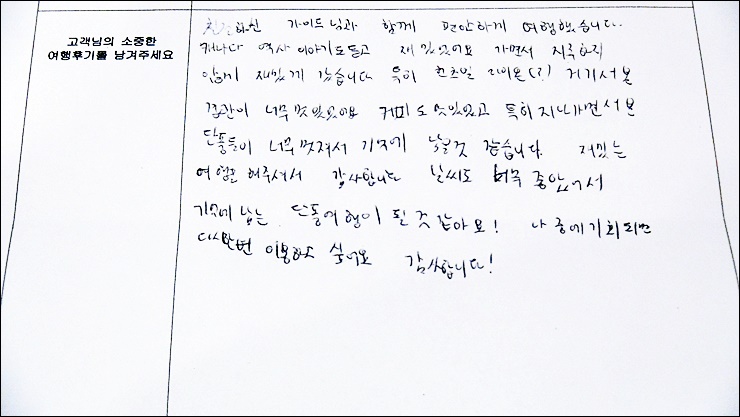 고객님의 소중한
여행후기를 남겨주세요
친절하신 가이드님과 함께 편안하게 여행했습니다.
캐나다 역사 이야기도 듣고 재밌었어요 가면서 지루하지
않게 재밌게 갔습니다 특히 라이온(?) 거기서 본
경관이 너무 멋있었어요 커피도 맛있었고 특히 지나가면서 본
단풍들이 너무 멋져서 기억에 남을것 같습니다. 재밌는
여행을 해주셔서 감사합니다 날씨도 너무 좋았어서
기억에 남는 단풍여행이 될 것 같아요! 나중에 기회되면
다시한번 이용하고 싶어요 감사합니다!